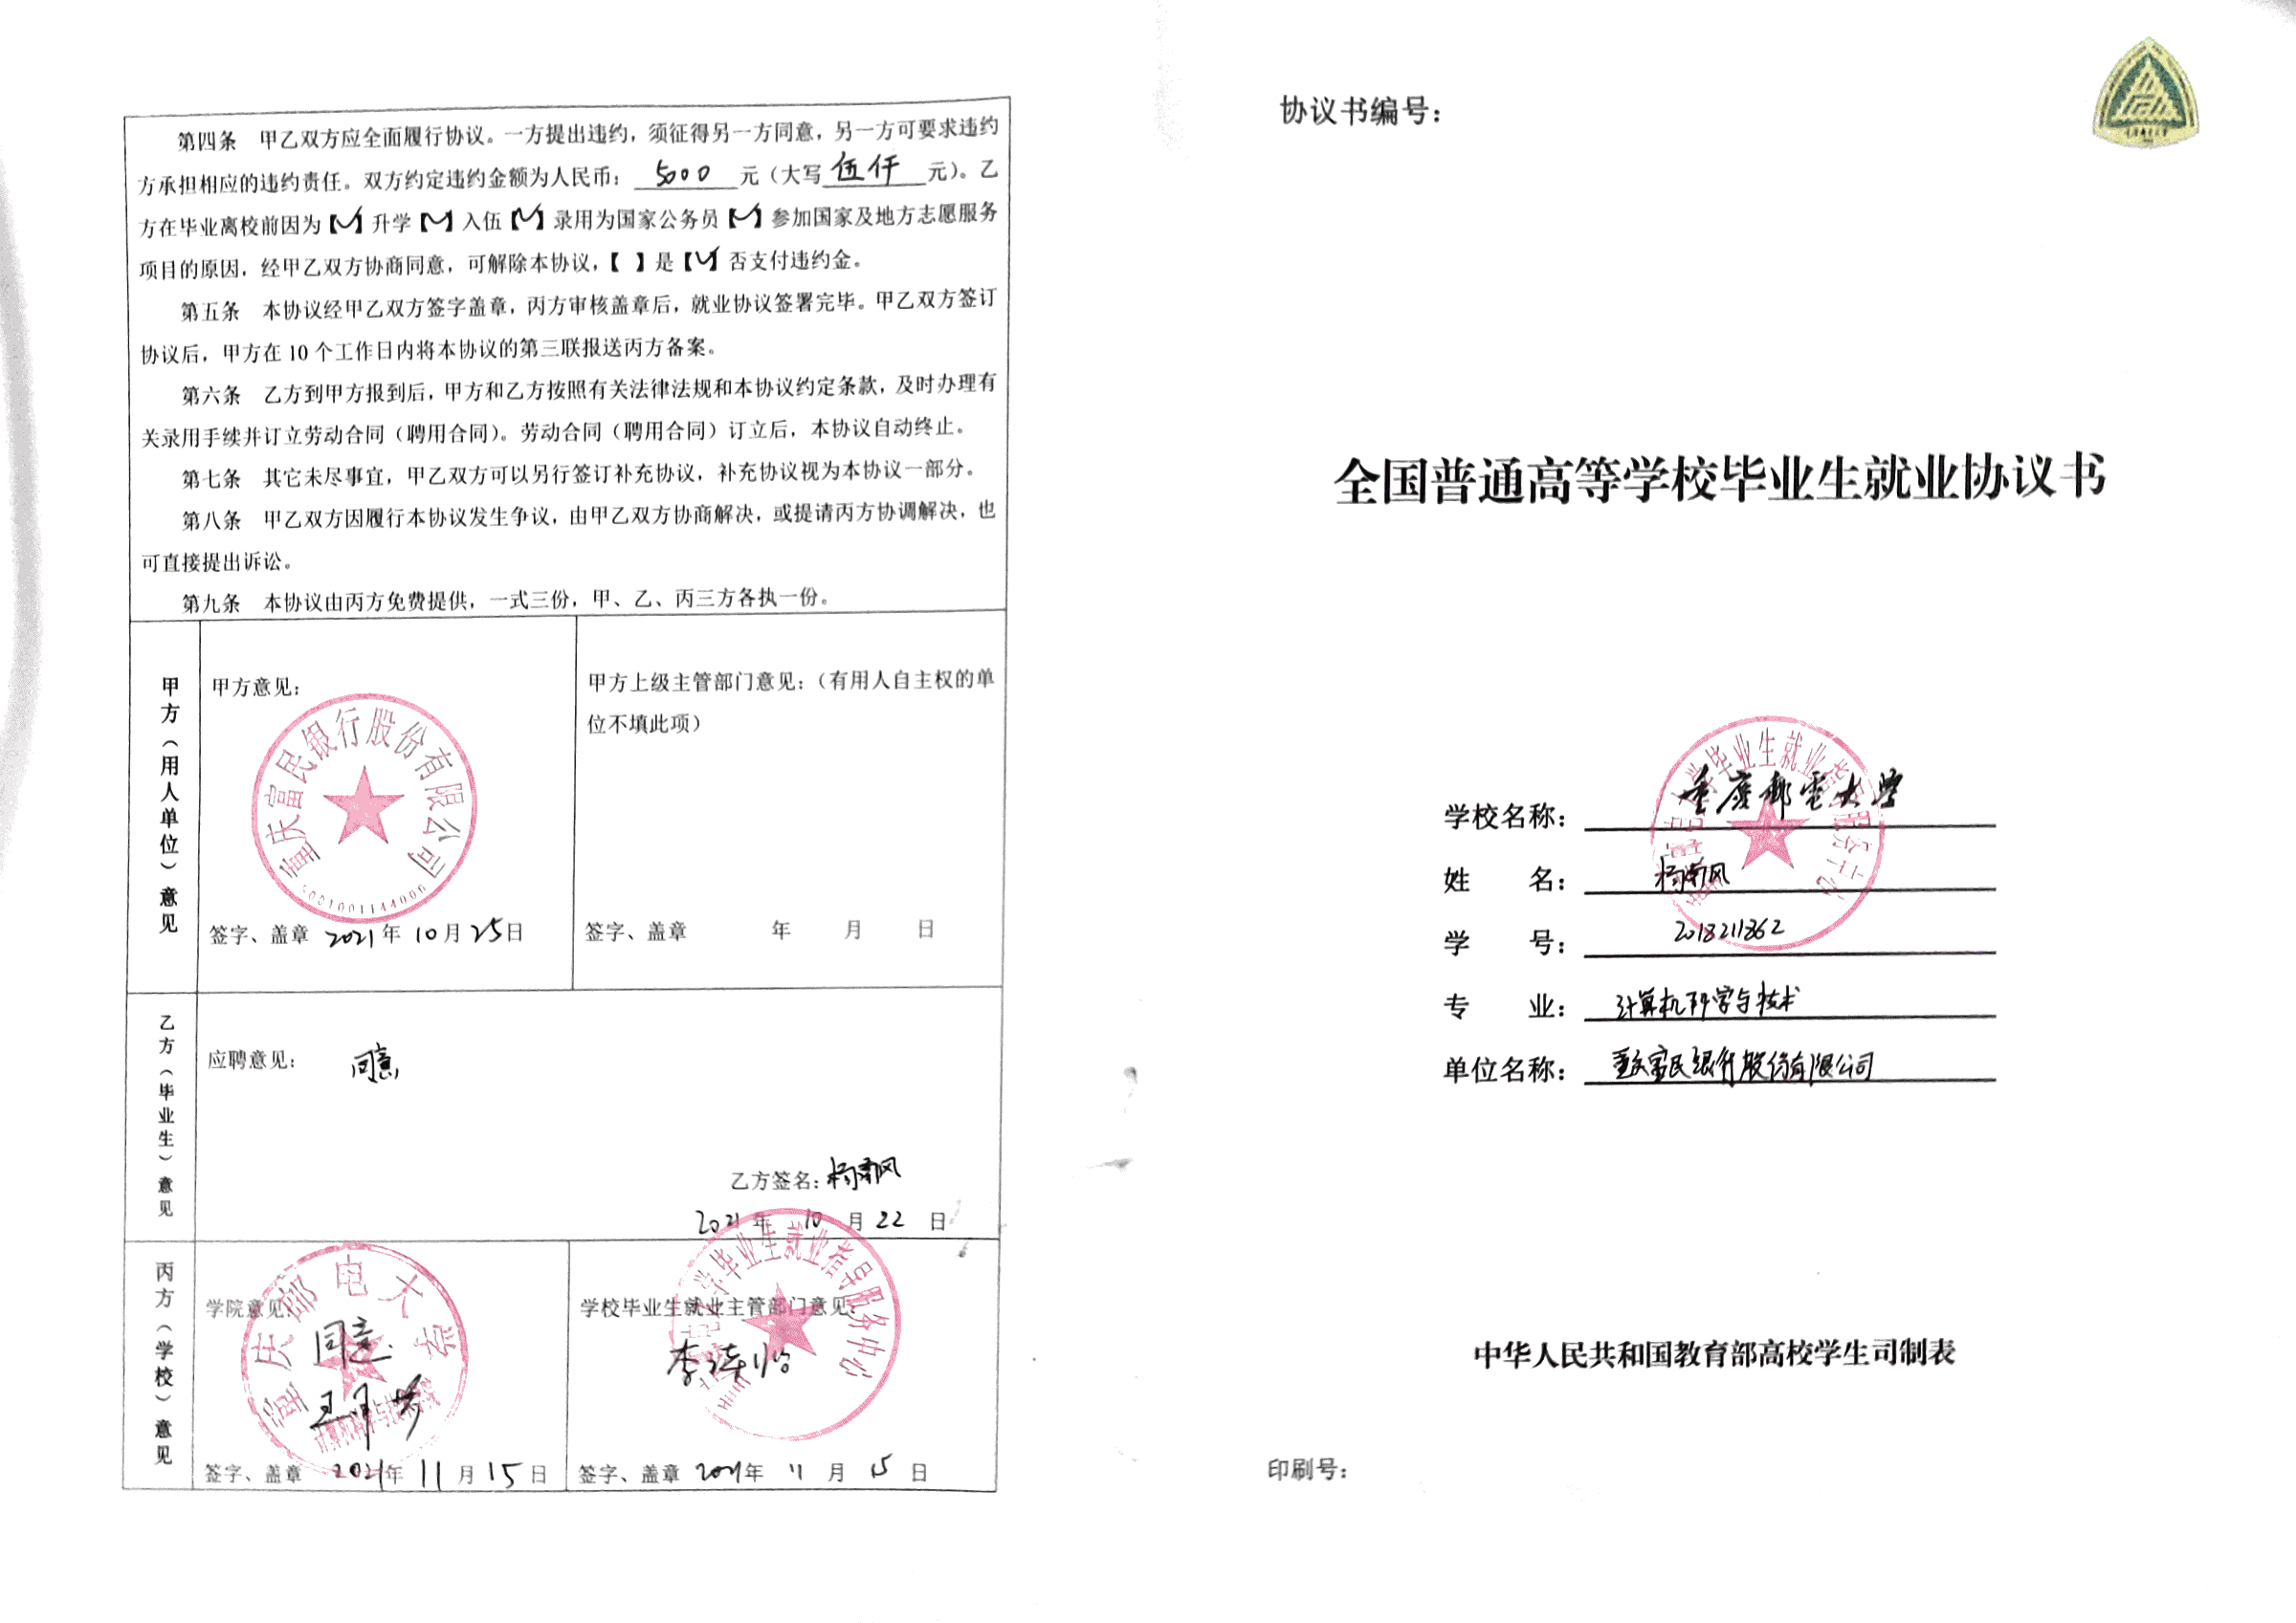 第四条 甲乙双方应全面履行协议。一方提出违约，须征得另一方同意，另一方可要求违约
方承担相应的违约责任。双方约定违约金额为人民币：5000元（大写伍仟元）。乙
方在毕业离校前因为【✓】升学【✓】入伍【✓】录用为国家公务员【✓】参加国家及地方志愿服务
项目的原因，经甲乙双方协商同意，可解除本协议，【 】是【✓】否支付违约金。
第五条 本协议经甲乙双方签字盖章，丙方审核盖章后，就业协议签署完毕。甲乙双方签订
协议后，甲方在10个工作日内将本协议的第三联报送丙方备案。
第六条 乙方到甲方报到后，甲方和乙方按照有关法律法规和本协议约定条款，及时办理有
关录用手续并订立劳动合同（聘用合同）。劳动合同（聘用合同）订立后，本协议自动终止。
第七条 其它未尽事宜，甲乙双方可以另行签订补充协议，补充协议视为本协议一部分。
第八条 甲乙双方因履行本协议发生争议，由甲乙双方协商解决，或提请丙方协调解决，也
可直接提出诉讼。
第九条 本协议由丙方免费提供，一式三份，甲、乙、丙三方各执一份。
甲方（用人单位）意见
甲方意见：
重庆富民银行股份有限公司
5001001144006
签字、盖章 2021年10月25日
甲方上级主管部门意见：（有用人自主权的单
位不填此项）
签字、盖章 年 月 日
乙方（毕业生）意见
应聘意见： 同意
乙方签名：
2021年10月22日
丙方（学校）意见
学院意见：
同意.
重庆邮电大学
计算机科学与技术学院
签字、盖章 2021年11月15日
学校毕业生就业主管部门意见：
学毕业生就业指导服务中心
签字、盖章 2021年11月15日
协议书编号：
全国普通高等学校毕业生就业协议书
学校名称：重庆邮電大学
姓 名：
学 号：2018211362
专 业：计算机科学与技术
单位名称：重庆富民银行股份有限公司
学毕业生就业指导服务中心
中华人民共和国教育部高校学生司制表
印刷号：